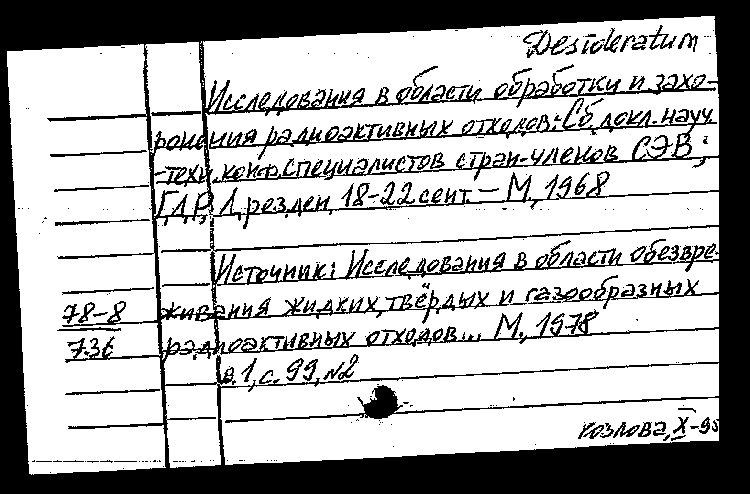 Desideratum
Исследования в области обработки и захо-
ронения радиоактивных отходов: Сб. докл. науч.
-техн. конф. специалистов стран-членов СЭВ;
ГДР, Дрезден, 18-22 сент. - М., 1968
Источник: Исследования в области обезвре-
78-8 живания жидких, твёрдых и газообразных
736 радиоактивных отходов... М., 1978
в. 1, с. 99, №2
Козлова, X-95